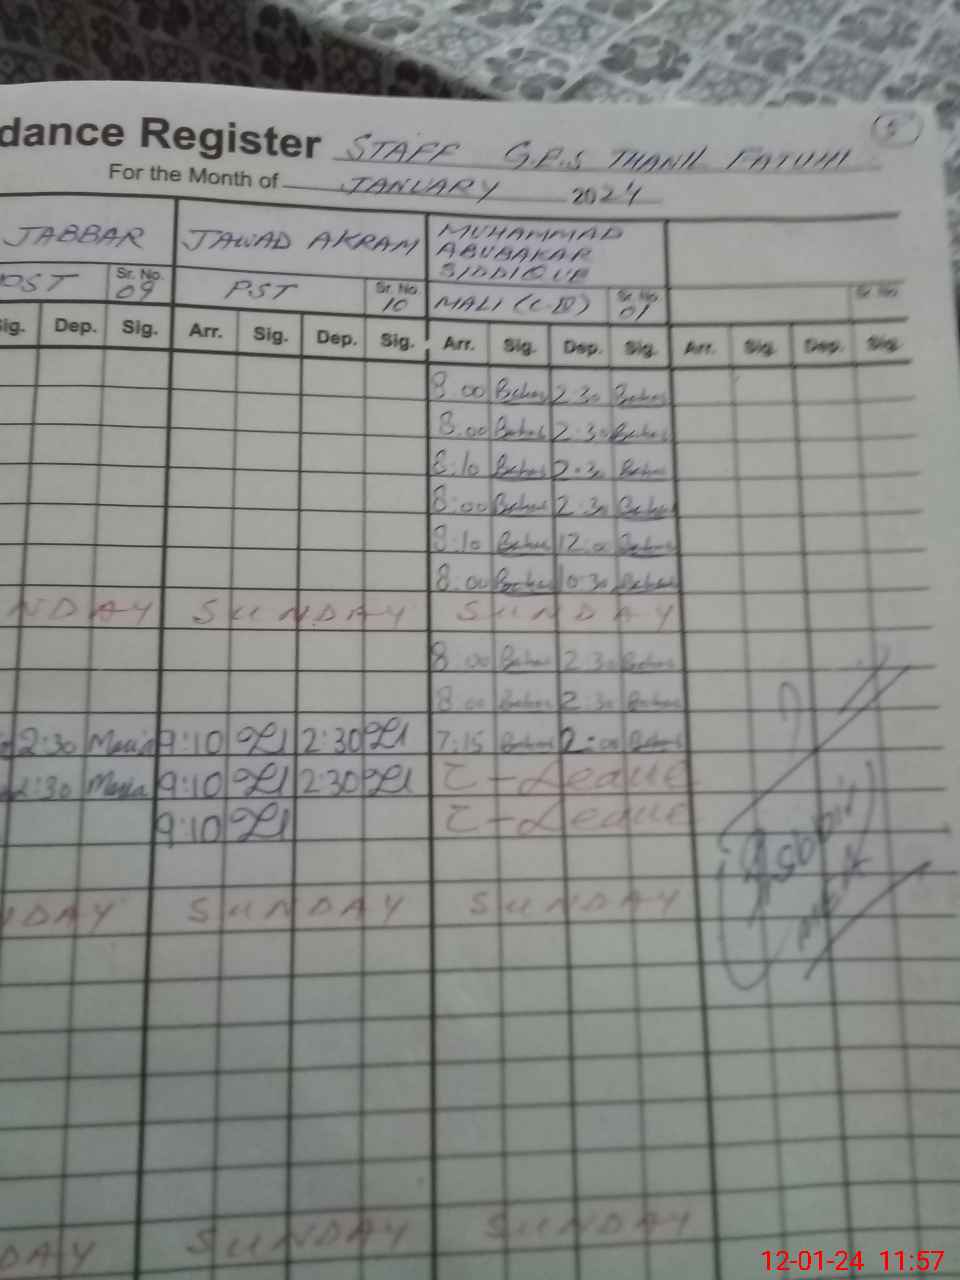 dance Register STAFF G.P.S THANIL FATUHI 5
For the Month of JANUARY 2024
JABBAR JAWAD AKRAM MUHAMMAD
ABUBAKAR
SIDDIQUE
PST Sr. No. 09 PST Sr. No. 10 MALI (C-IV) Sr. No. 01 Sr. No.
Sig. Dep. Sig. Arr. Sig. Dep. Sig. Arr. Sig. Dep. Sig. Arr. Sig. Dep. Sig.
8:00 2:30
8:00 2:30
8:10 2:30
8:00 2:30
8:10 12:00
8:00 10:30
NDAY SUNDAY SUNDAY
8:00 2:30
8:00 2:30
2:30 9:10 2:30 7:15 2:00
2:30 9:10 2:30 C-Leave
9:10 C-Leave
NDAY SUNDAY SUNDAY
DAY SUNDAY SUNDAY
12-01-24 11:57